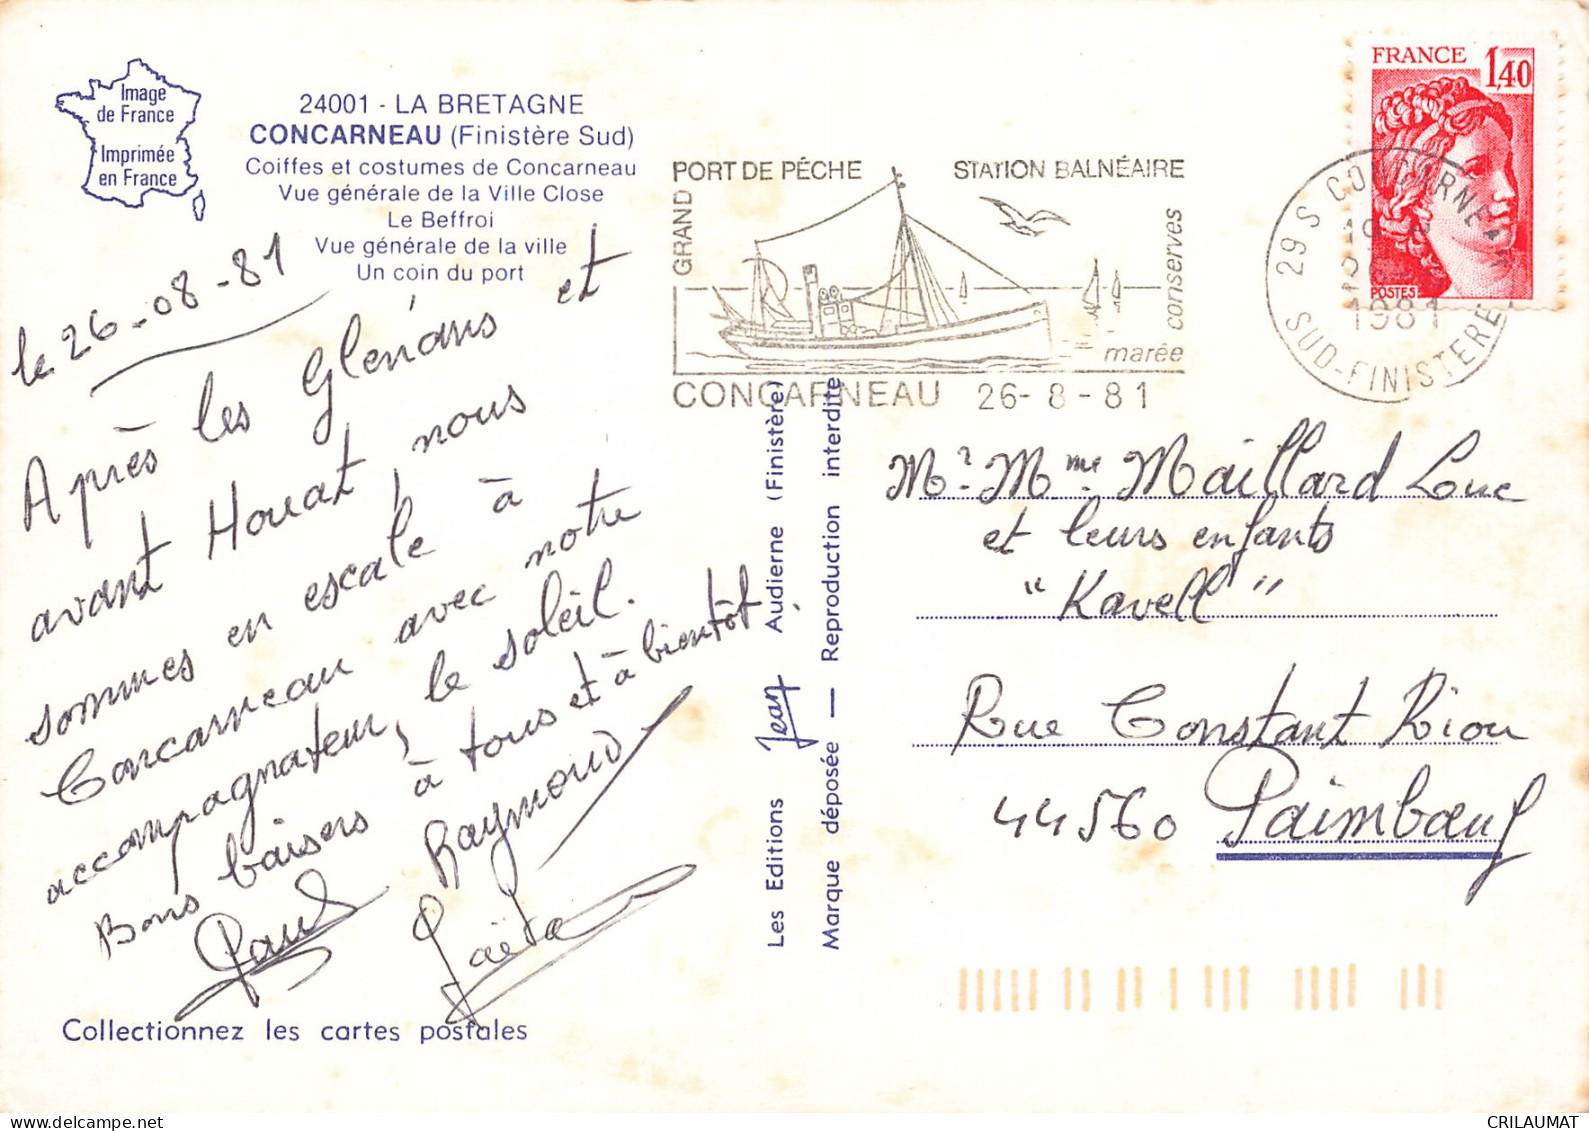 Image
de France
Imprimée
en France
24001 - LA BRETAGNE
CONCARNEAU (Finistère Sud)
Coiffes et costumes de Concarneau
Vue générale de la Ville Close
Le Beffroi
Vue générale de la ville
Un coin du port
le 26-08-81
Après les Glénans et
avant Houat nous
sommes en escale à
Concarneau avec notre
accompagnateur, le soleil.
Bons baisers à tous et à bientôt.
Raymond
Paul
Gaëta
Collectionnez les cartes postales
Les Editions Jean Audierne (Finistère)
Marque déposée — Reproduction interdite
GRAND
PORT DE PÊCHE
STATION BALNÉAIRE
conserves
marée
CONCARNEAU 26-8-81
FRANCE 1,40
POSTES
29 S CONCARNEAU
1981
SUD-FINISTERE
Mr Mme Maillard Luc
et leurs enfants
"Kavell"
Rue Constant Riou
44560 Paimbœuf
CRILAUMAT